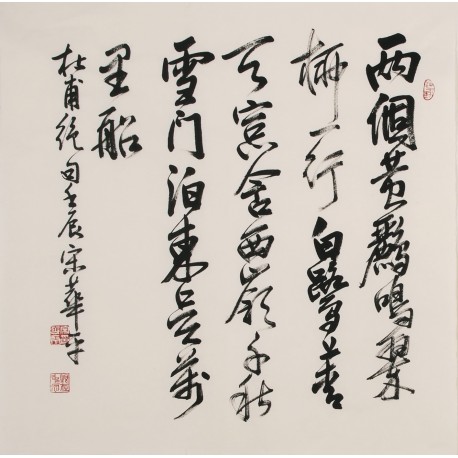 两個黄鸝鳴翠
柳一行白鷺上青
天窗含西嶺千秋
雪门泊東吴萬
里船
杜甫绝句壬辰宋華平